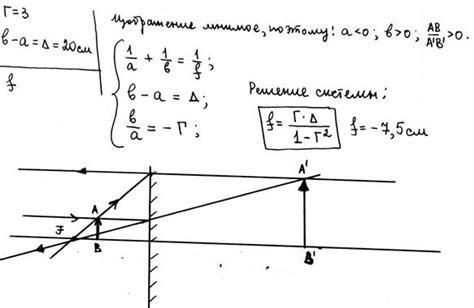 Г=3
в-а=Δ=20см
f
Изображение мнимое, поэтому: а<0; в>0; AB/A'B'>0.
1/a + 1/в = 1/f;
в-а=Δ;
в/a = -Г;
Решение системы:
f = Г·Δ/1-Г² f=-7,5см
A'
A
F
B
B'